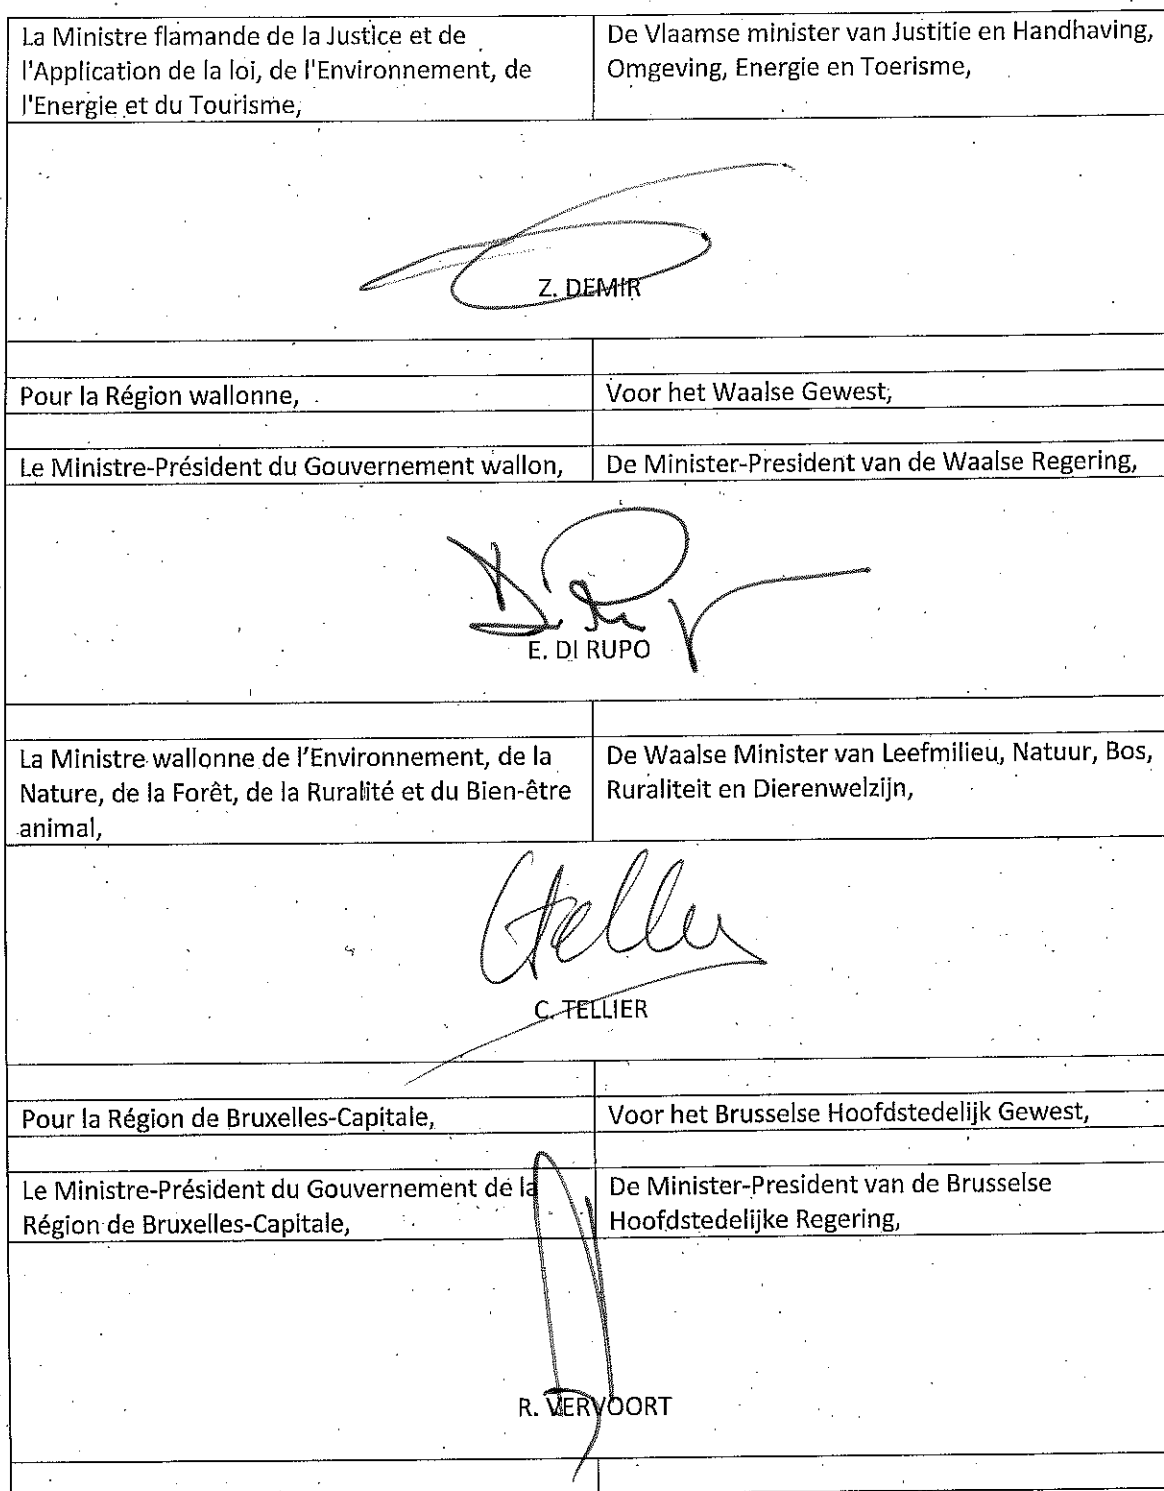 La Ministre flamande de la Justice et de
l'Application de la loi, de l'Environnement, de
l'Energie et du Tourisme,
De Vlaamse minister van Justitie en Handhaving,
Omgeving, Energie en Toerisme,
Z. DEMIR
Pour la Région wallonne,
Voor het Waalse Gewest,
Le Ministre-Président du Gouvernement wallon,
De Minister-President van de Waalse Regering,
Di Rupo
E. DI RUPO
La Ministre wallonne de l'Environnement, de la
Nature, de la Forêt, de la Ruralité et du Bien-être
animal,
De Waalse Minister van Leefmilieu, Natuur, Bos,
Ruraliteit en Dierenwelzijn,
CTellier
C. TELLIER
Pour la Région de Bruxelles-Capitale,
Voor het Brusselse Hoofdstedelijk Gewest,
Le Ministre-Président du Gouvernement de la
Région de Bruxelles-Capitale,
De Minister-President van de Brusselse
Hoofdstedelijke Regering,
R. VERVOORT